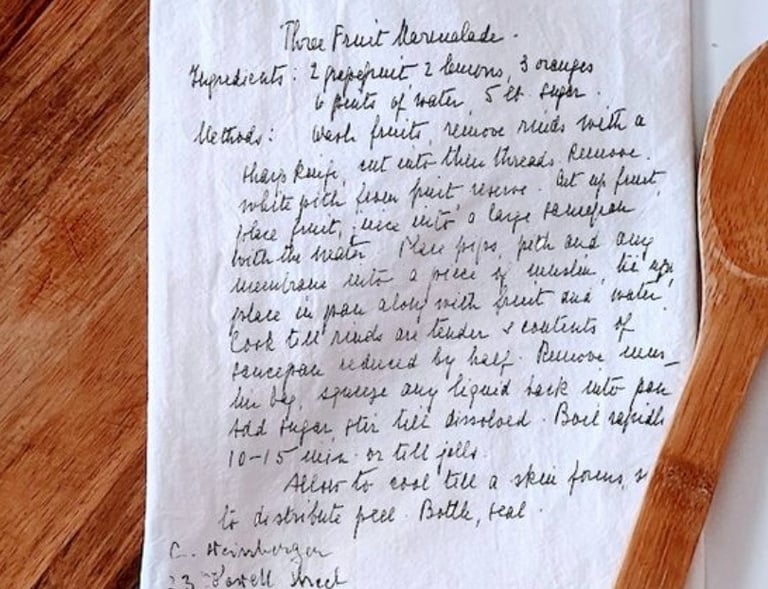 Three Fruit Marmalade.
Ingredients: 2 grapefruit 2 lemons, 3 oranges
6 pints of water, 5 lb. sugar.
Methods: Wash fruits, remove rinds with a
sharp knife, cut into thin threads. Remove.
white pith from fruit, reserve. Cut up fruit,
place fruit, juice into a large saucepan
with the water. Place pips, pith and any
membrane into a piece of muslin, tie up,
place in pan along with fruit and water.
Cook till rinds are tender & contents of
saucepan reduced by half. Remove mus-
lin bag, squeeze any liquid back into pan
Add sugar, stir till dissolved. Boil rapidly
10-15 min. or till jells.
Allow to cool till a skin forms,
to distribute peel. Bottle, seal.
C. Weinberger
23 Powell Street